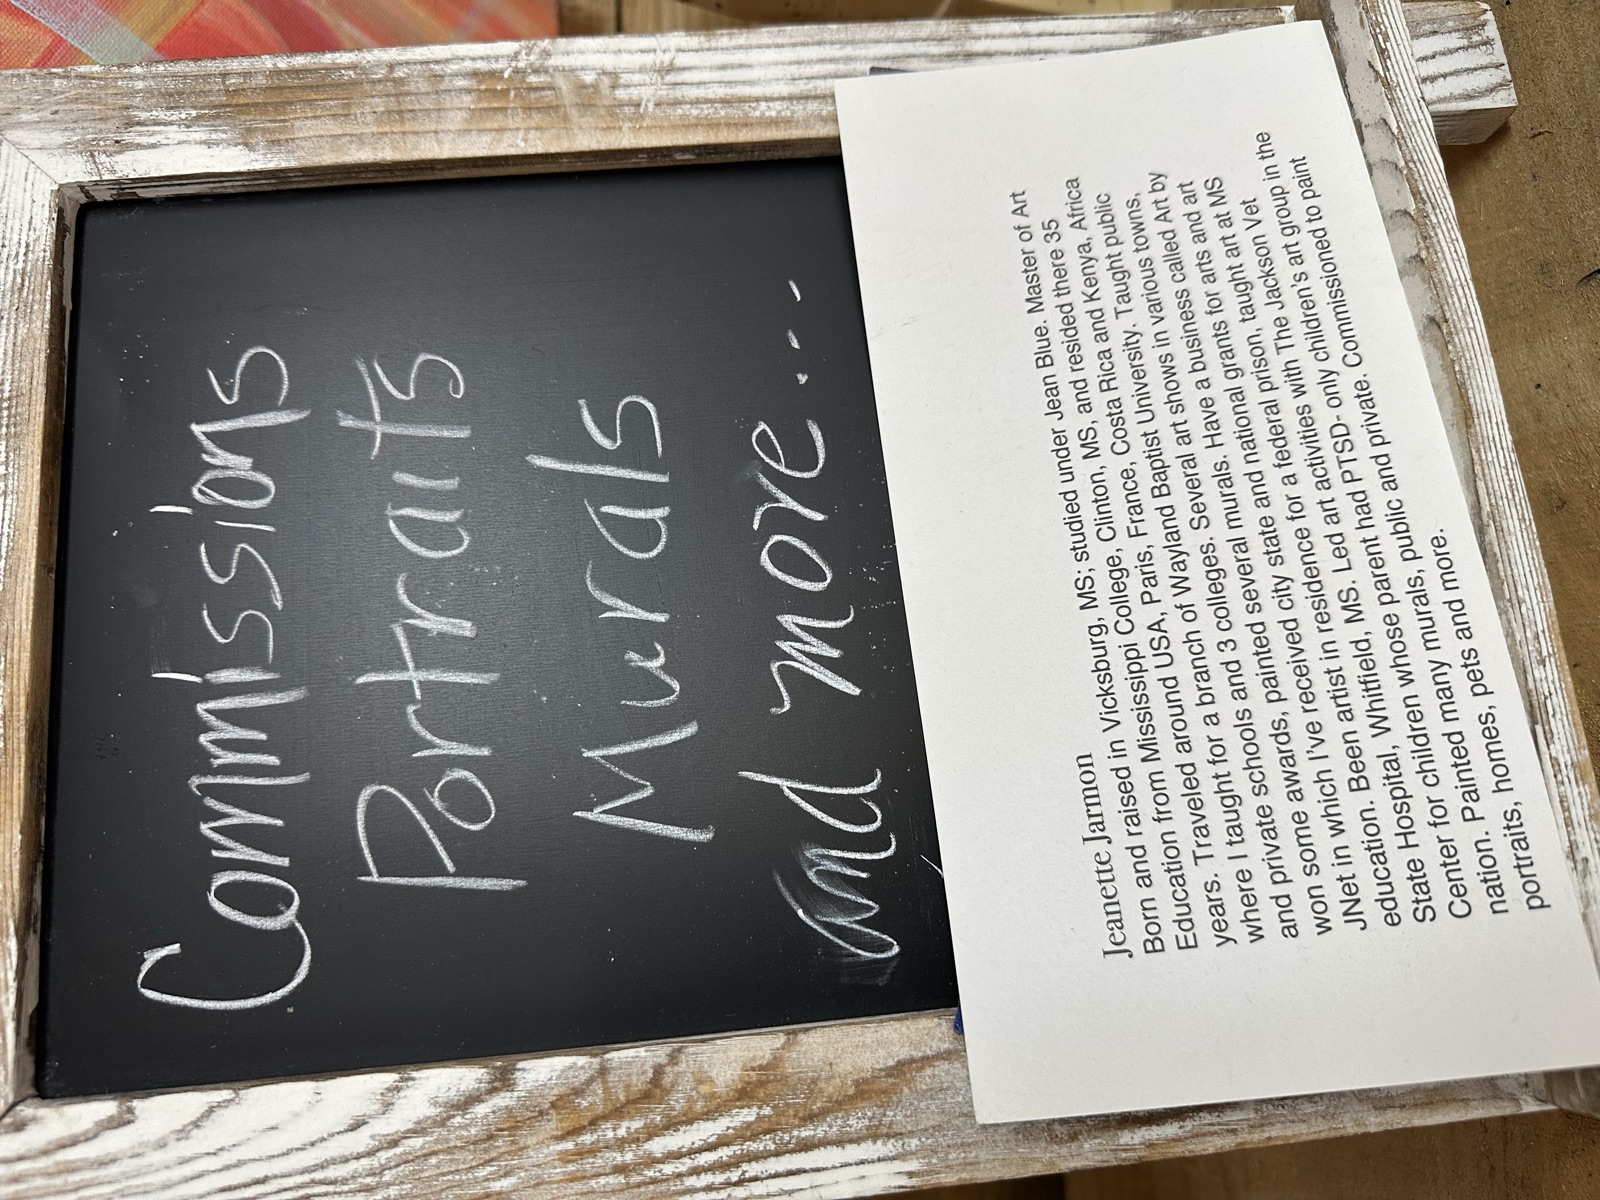 Commissions
Portraits
Murals
and more...
Jeanette Jarmon
Born and raised in Vicksburg, MS; studied under Jean Blue. Master of Art
Education from Mississippi College, Clinton, MS, and resided there 35
years. Traveled around USA, Paris, France, Costa Rica and Kenya, Africa
where I taught for a branch of Wayland Baptist University. Taught public
and private schools and 3 colleges. Several art shows in various towns,
won some awards, painted several murals. Have a business called Art by
JNet in which I've received city state and national grants for arts and art
education. Been artist in residence for a federal prison, taught art at MS
State Hospital, Whitfield, MS. Led art activities with The Jackson Vet
Center for children whose parent had PTSD- only children's art group in the
nation. Painted many murals, public and private. Commissioned to paint
portraits, homes, pets and more.